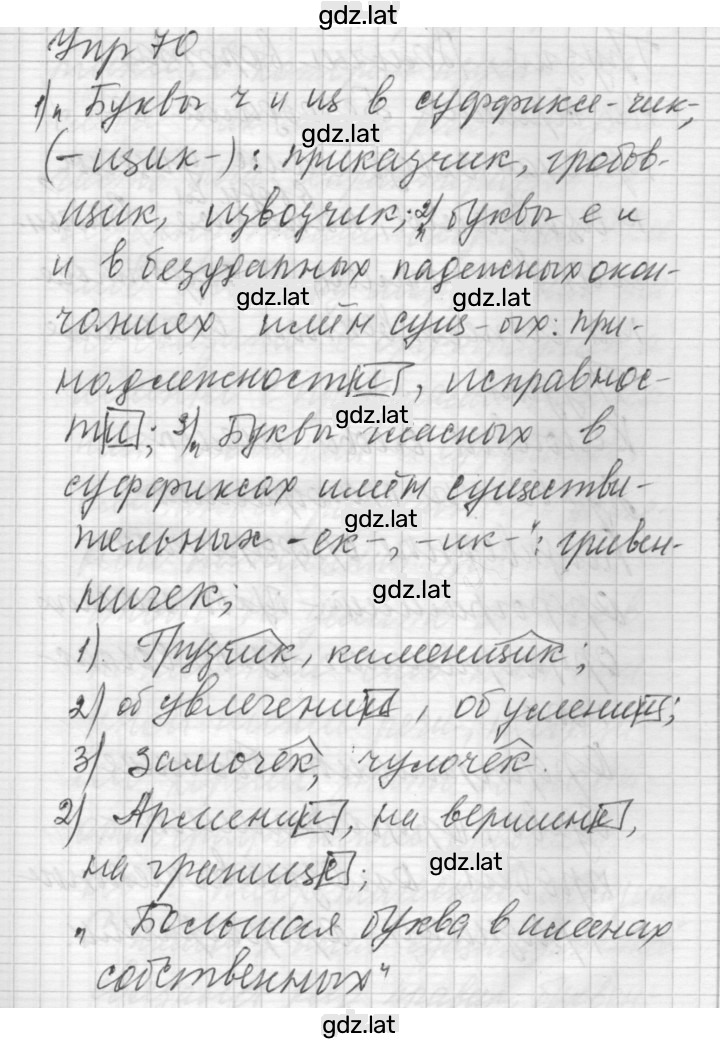 gdz.lat
Упр 70
1) „Буквы ч и щ в суффиксе -чик-,
gdz.lat
(-щик-): приказчик, гробов-
щик, извозчик; 2) „буквы е и
и в безударных падежных окон-
gdz.lat gdz.lat
чаниях имён сущ-ых: при-
надлежности, исправнос-
gdz.lat
ти; 3) „Буквы гласных в
суффиксах имён существи-
gdz.lat
тельных -ек-, -ик-": гривен-
gdz.lat
ничек;
1) Грузчик, каменщик;
2) об увлечении, об умении;
3) замочек, чулочек.
2) Армении, на вершине,
на границе;
gdz.lat
„Большая буква в именах
собственных"
gdz.lat